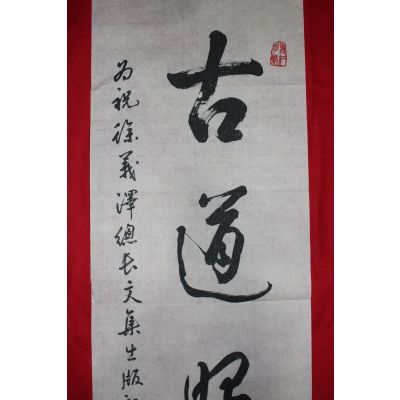 古道
為祝徐義澤總長文集出版